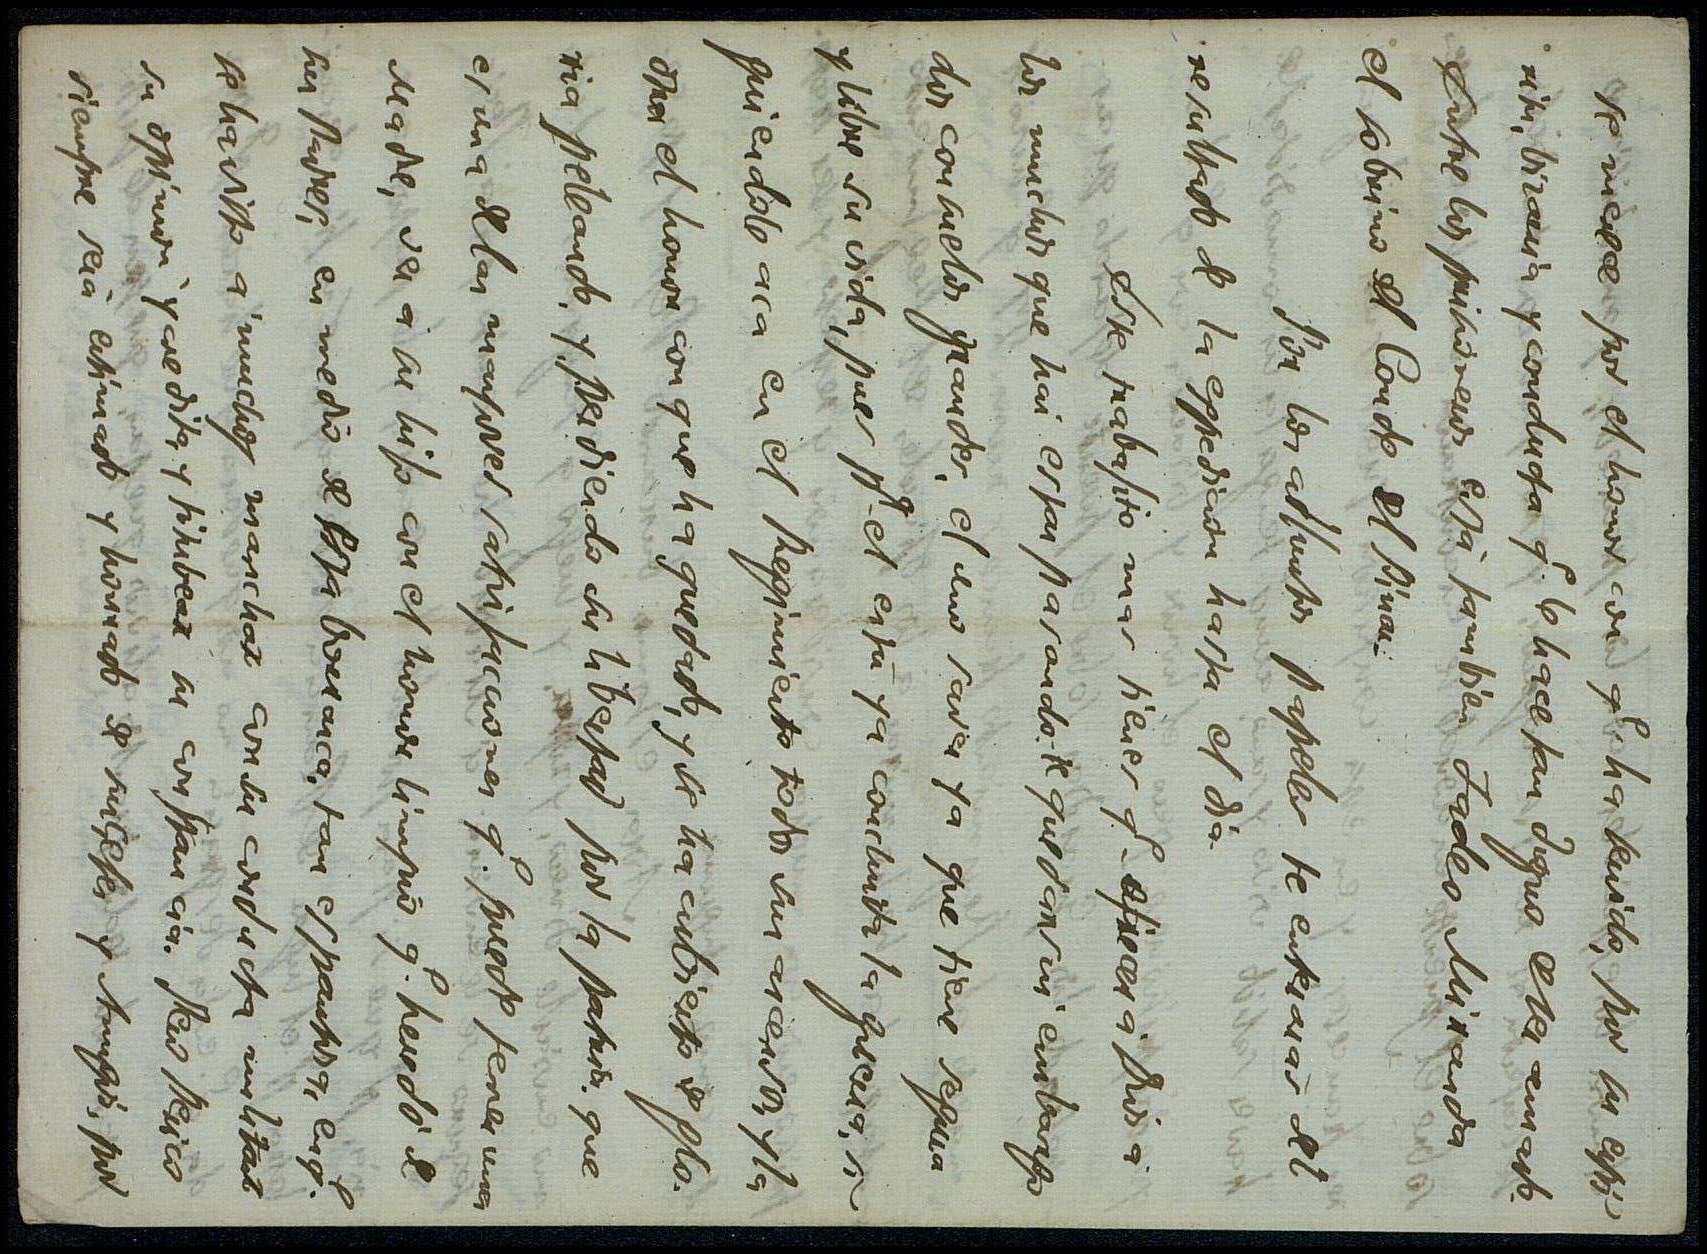 se merece por el honor con q.e ha tenido, por su espi-
ritu, bizarria y conducta q.e lo hace tan digno de ser amado.
Entre los pricioneros está tambien Tadeo Miranda
el sobrino del Conde del
Por los adjuntos papeles te enterarás del
resultado de la espedicion hasta el dia.
Este trabajito mas tienes q.e ofrecer á Dios á
los muchos que hai estas pasando: te quedaran sin embargo
dos consuelos grandes, el uno saver ya que tiene segura
y libre su vida, pues p.r el está ya concluida la guerra, si-
guiendolo aca en el Regimiento todos sus ascensos, y la
otra el honor con que ha quedado, y se ha cubierto de glo-
ria peleando, y perdiendo su libertad por la patria. que
es una de las mayores satisfacciones q.e puede tener una
Madre, ver á su hijo con el honor limpio q.e heredó de
sus Padres, en medio de esta borrasca, tan espantosa, en q.e
se ha visto á muchos manchar con su conducta militar
su opinion y credito, y titubear su constancia. Pero Perico
siempre será estimado y honrado de sugetos y Amigos, por